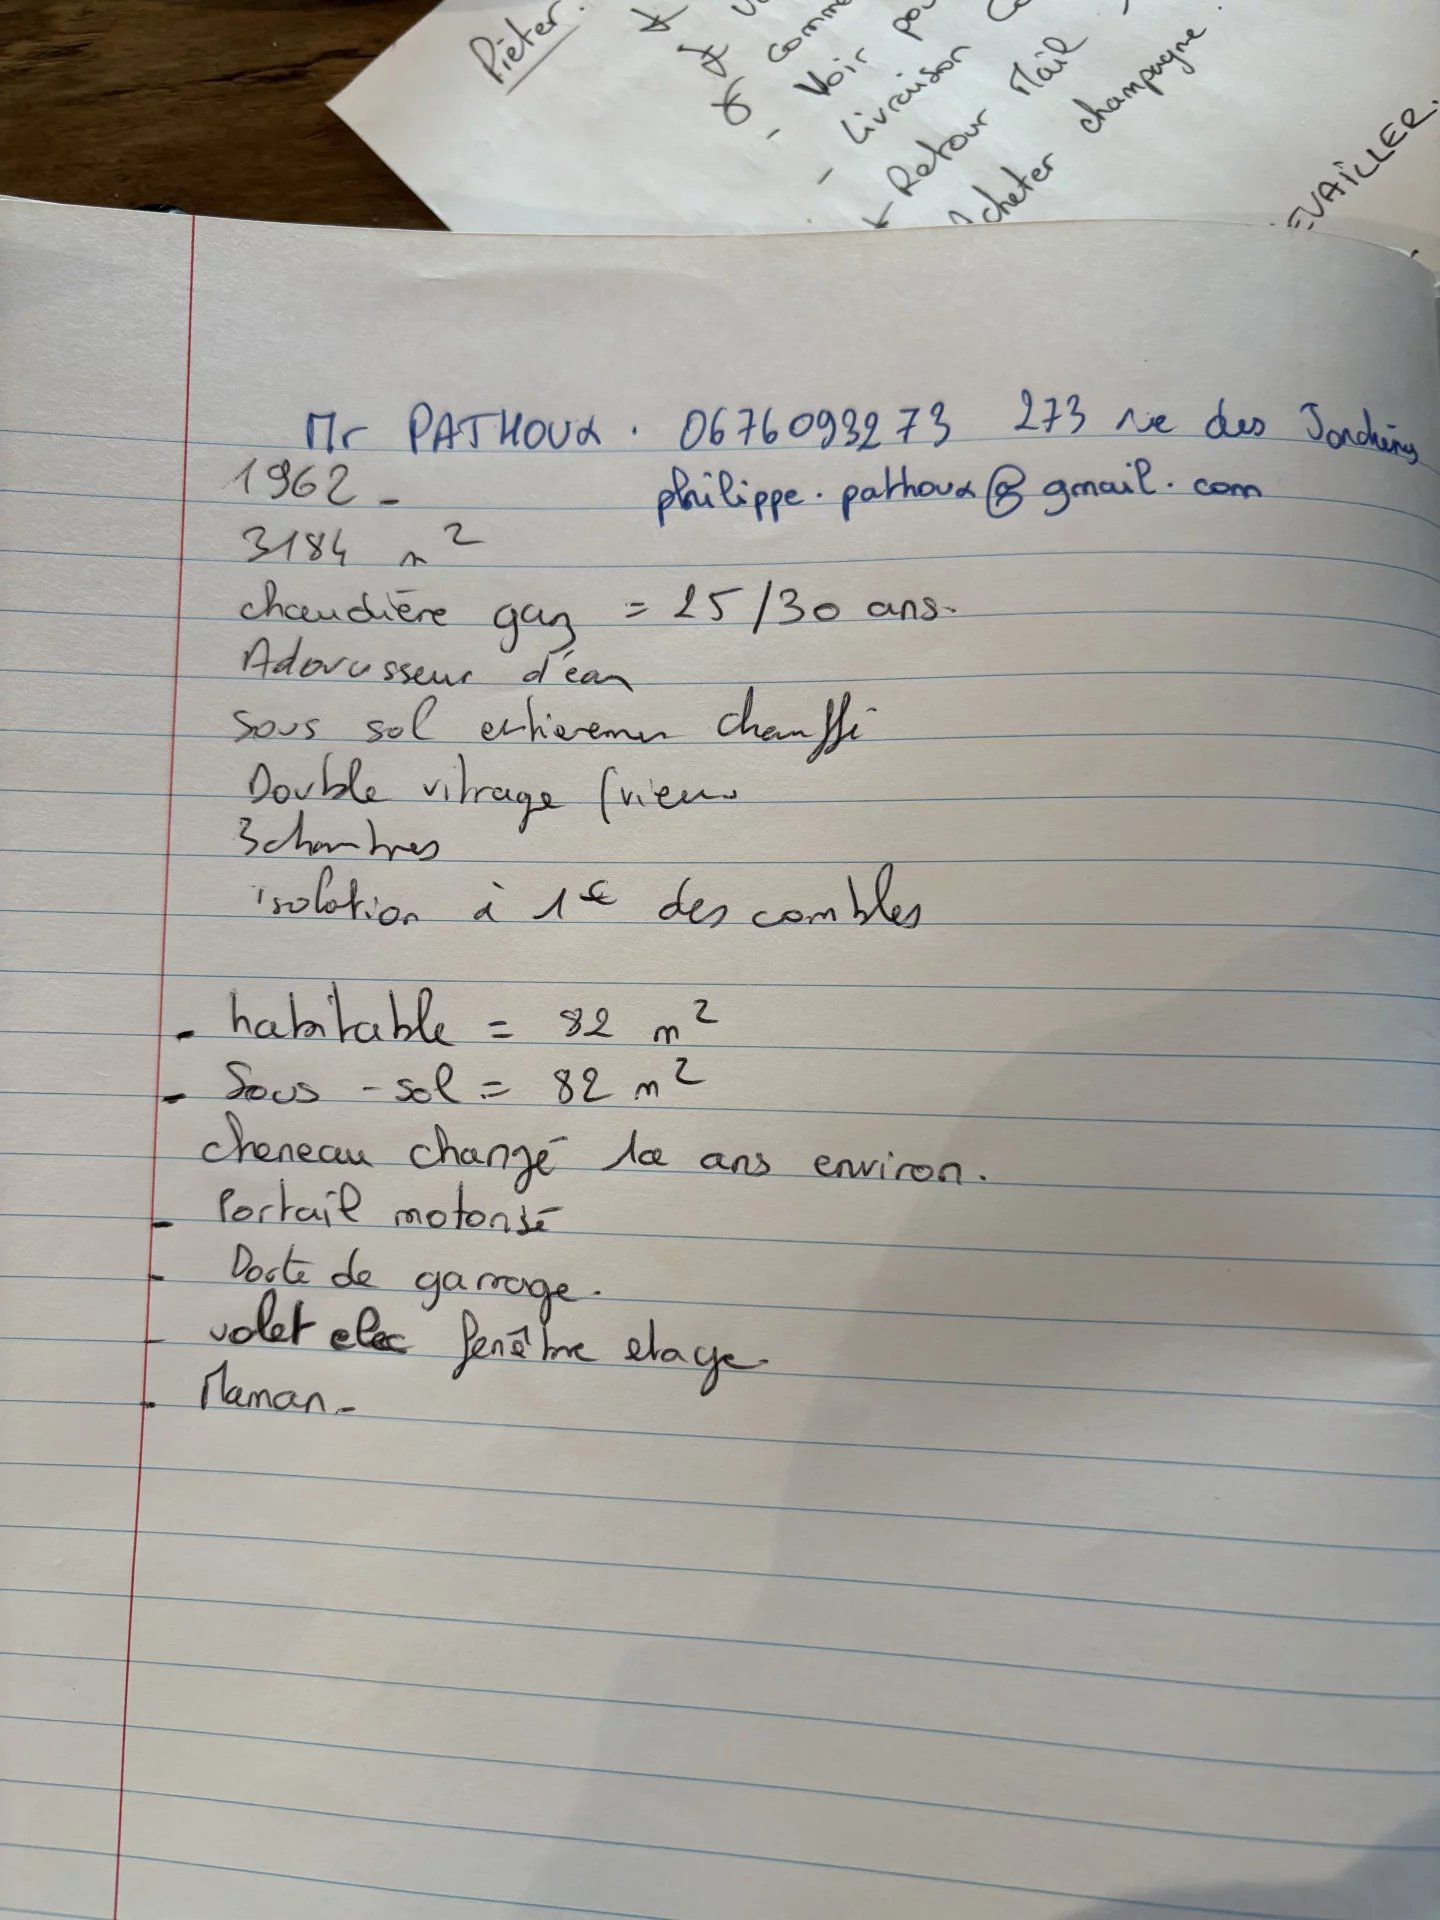 Pièter.
comme
- Voir pou
- Livraison Co
Retour Mail
Acheter champagne.
EVAILLER.
Mr PATHOUX. 0676093273 273 rue des
1962 -
philippe.pathoux@gmail.com
3184 m²
chaudière gaz = 25/30 ans.
Adoucisseur d'eau
Sous sol entieremen chauffé
Double vitrage (vieux
3 chambres
isolation à 1€ des combles
- habitable = 82 m²
- Sous-sol = 82 m²
cheneau changé ans environ.
- Portail motorisé
- Porte de garrage.
- volet elec fenêtre etage
- Maman -